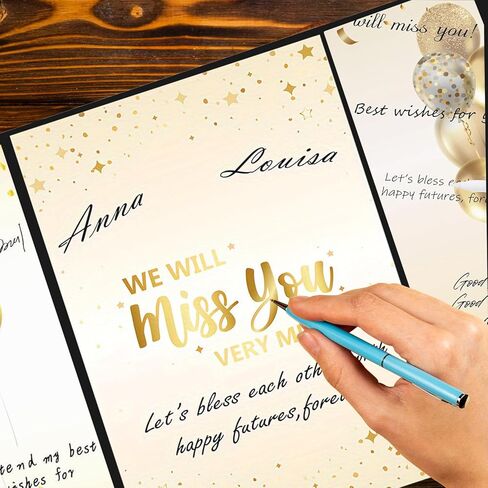 will miss you!
Best wishes for
Let's bless
happy futures, fore
Good
Good
Anna
Louisa
WE WILL
Miss You
VERY M
Let's bless each oth
happy futures,fore
tend my best
wishes for